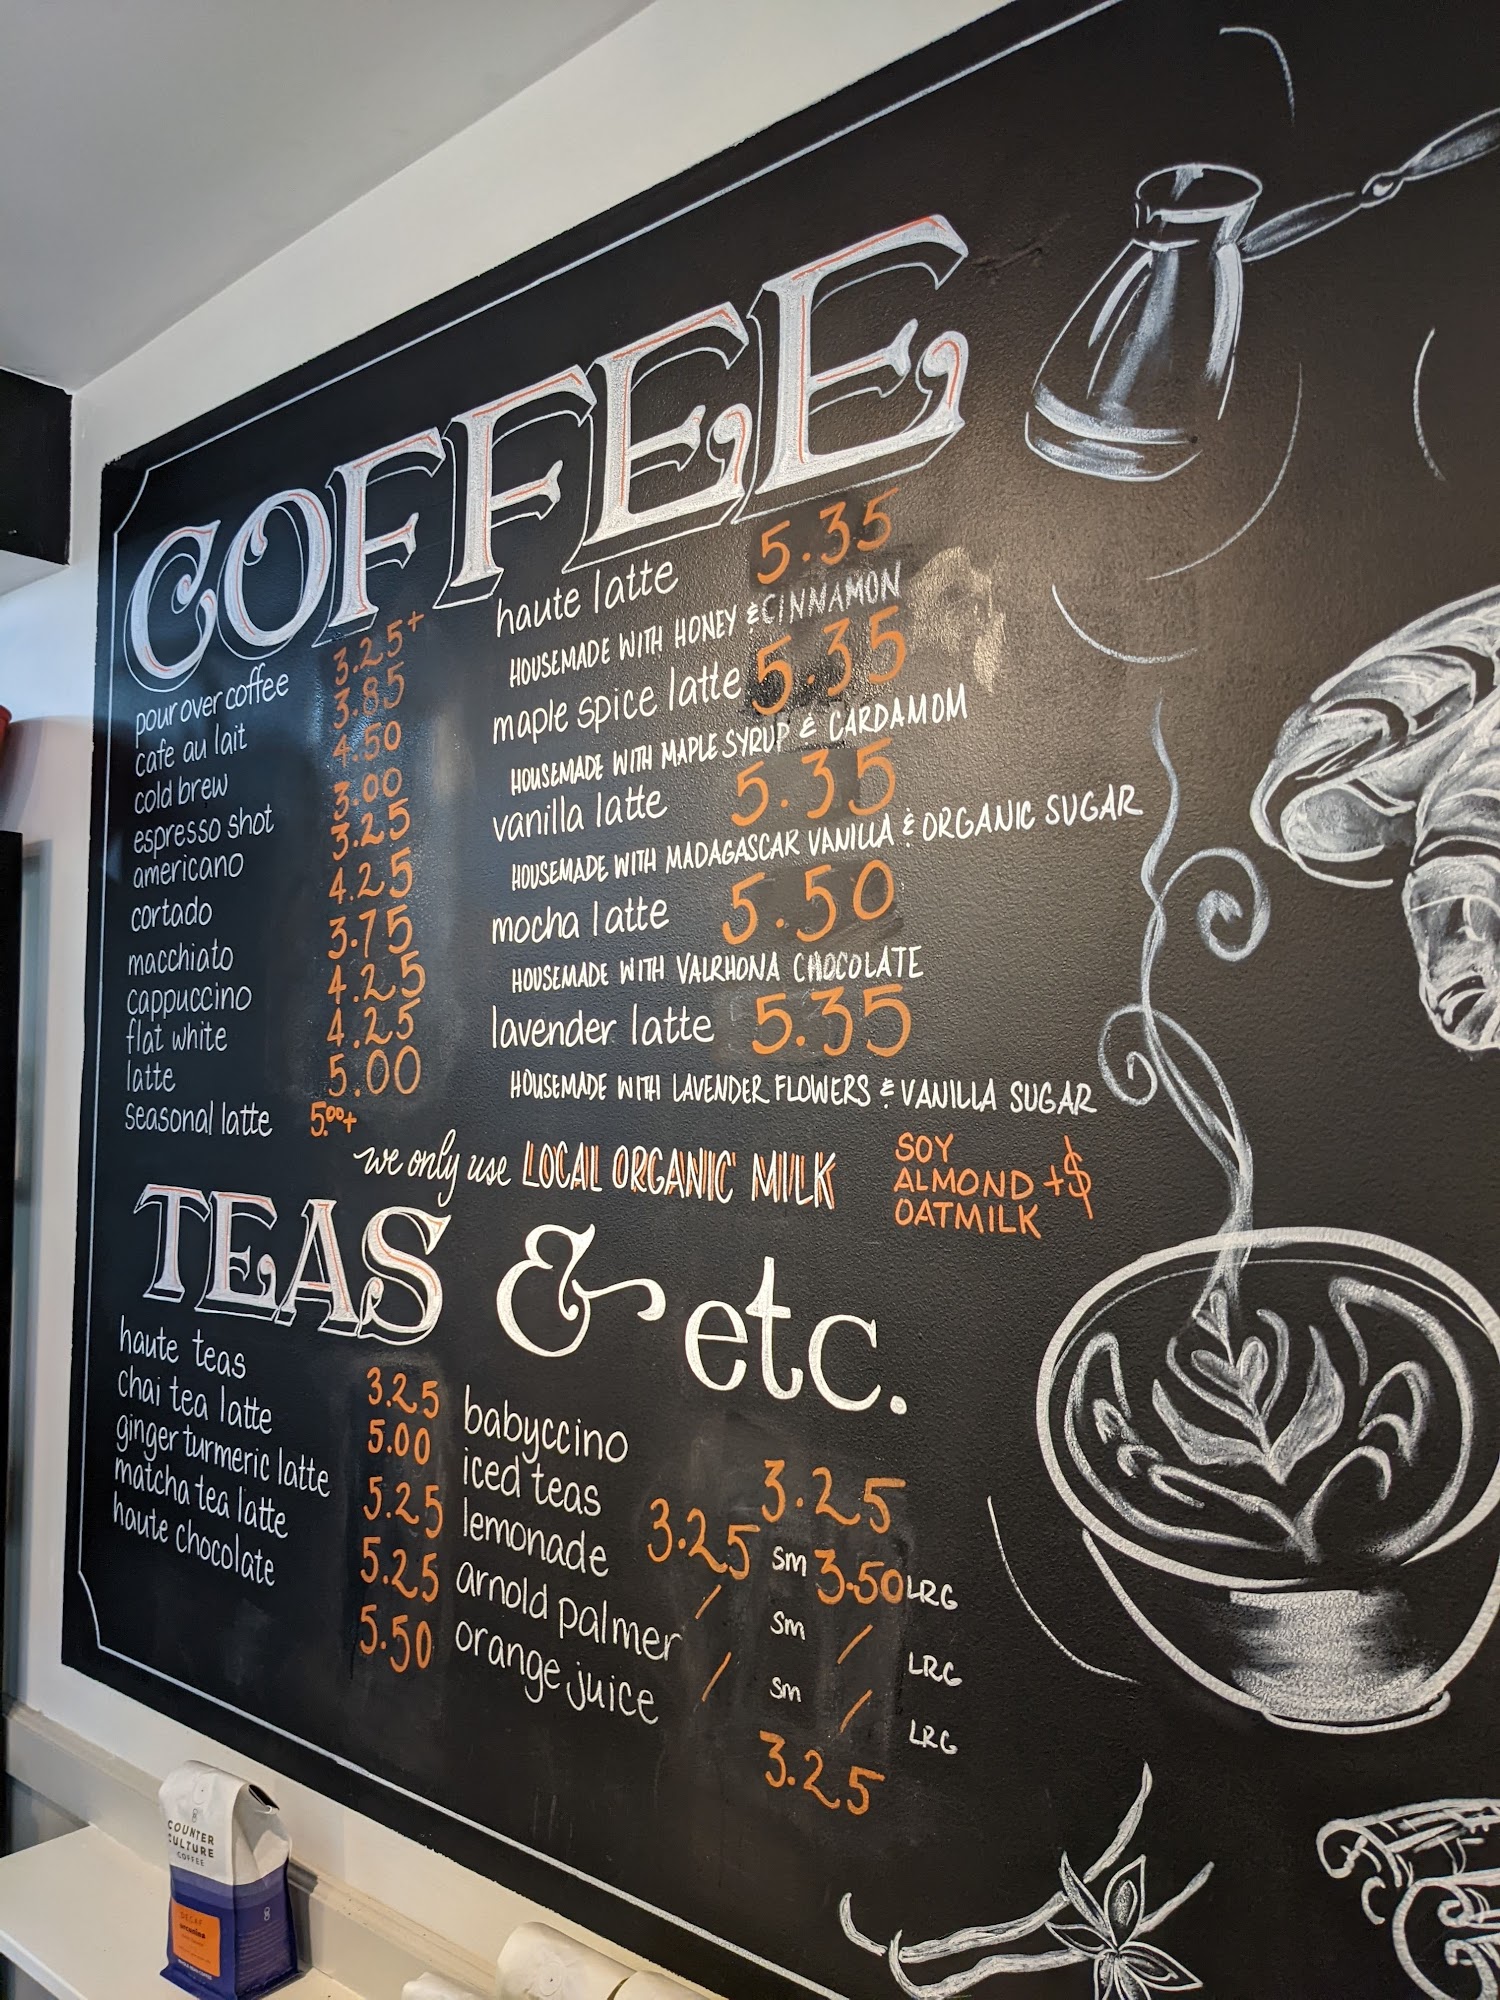 COFFEE
pour over coffee 3.25+
cafe au lait 3.85
cold brew 4.50
espresso shot 3.00
americano 3.25
cortado 4.25
macchiato 3.75
cappuccino 4.25
flat white 4.25
latte 5.00
seasonal latte 5.00+
haute latte 5.35
HOUSEMADE WITH HONEY & CINNAMON
maple spice latte 5.35
HOUSEMADE WITH MAPLE SYRUP & CARDAMOM
vanilla latte 5.35
HOUSEMADE WITH MADAGASCAR VANILLA & ORGANIC SUGAR
mocha latte 5.50
HOUSEMADE WITH VALRHONA CHOCOLATE
lavender latte 5.35
HOUSEMADE WITH LAVENDER FLOWERS & VANILLA SUGAR
we only use LOCAL ORGANIC MILK
SOY
ALMOND +$
OATMILK
TEAS & etc.
haute teas 3.25
chai tea latte 5.00
ginger turmeric latte 5.25
matcha tea latte 5.25
haute chocolate 5.50
babyccino 3.25
iced teas 3.25 sm 3.50 LRG
lemonade / sm / LRG
arnold palmer / sm / LRG
orange juice 3.25
COUNTER
CULTURE
COFFEE
DECAF